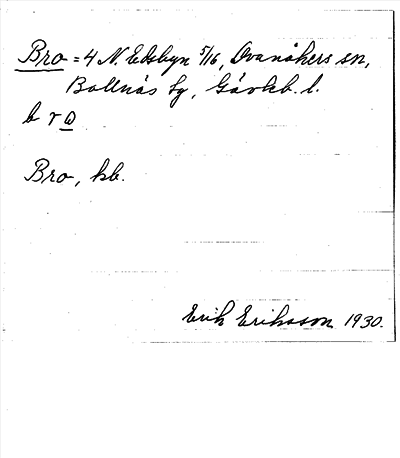 Bro = 4 N. Edsbyn 5/16, Ovanåkers sn,
Bollnäs tg, Gävleb. l.
b r o
Bro, hb.
Erik Eriksson 1930.